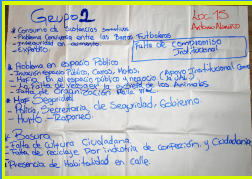 Grupo 2
Loc. 15
Antonio Nariño
* Consumo de Sustancias
* Problema Convivencia entre las Barras Futboleras
- Inseguridad en aumento
- Expendio
Falta de Compromiso
Institucional
* Problema en espacio Público
- Invasión espacio Público, Carros, Motos.
(Apoyo Institucional
- Hurto En el espacio público a negocio
- La Falta de recoger la de los Animales
- Falta de Organización
* Hur Seguridad
- Policia, Secretaria de Seguridad, Gobierno.
- Hurto - Raponeo.
* Basura
- Falta de Cultura Ciudadana.
- Falta de reciclaje Por industria de confección, y Ciudadanía
* Presencia de Habitalidad en calle.